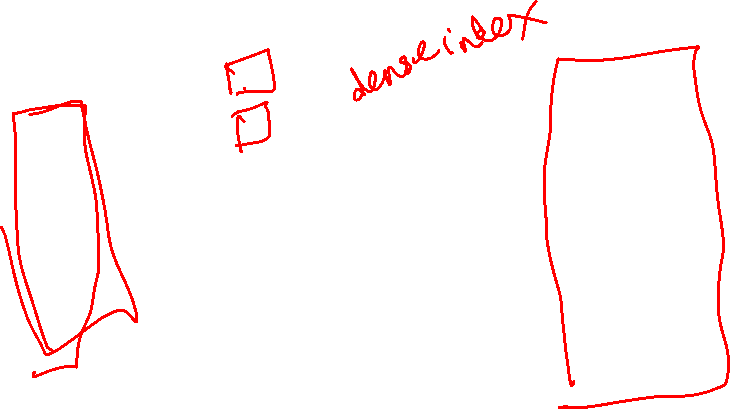 dense index